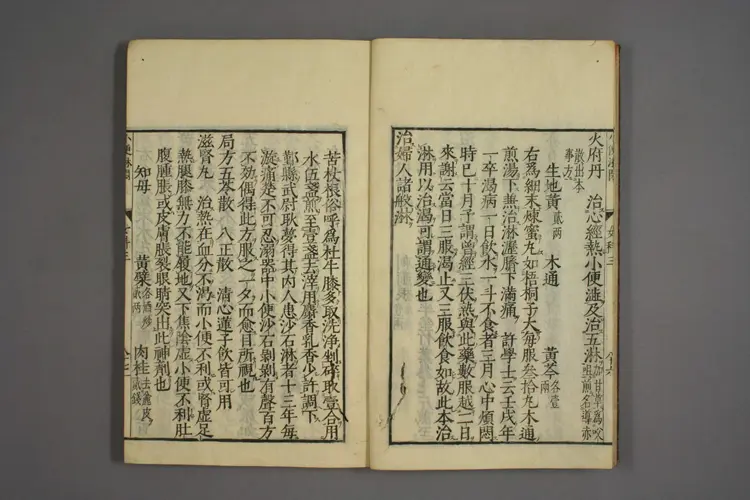 火府丹 治心經熱小便澁及治五淋 加甘草爲㕮咀煎名導赤
散出本事方
生地黃 貳兩 木通 黃芩 各壹兩
右爲細末煉蜜丸如梧桐子大每服叁拾丸木通
煎湯下兼治淋瀝臍下滿痛 許學士云壬戌年
一卒渴病一日飲水一斗不食者三月心中煩悶
時巳十月予謂曾經三伏熱與此藥數服越二日
來謝云當日三服渴止又三服飲食如故此本治
淋用以治渴可謂通變也
治婦人諸般淋
苦杖根俗呼爲杜牛膝多取洗淨剉碎取壹合用
水伍盞煎至壹盞去滓用麝香乳香少許調下
鄞縣武尉耿夢得其內人患沙石淋者十三年每
漩痛楚不可忍溺器中小便沙石剝剝有聲百方
不効偶得此方服之一夕而愈目所覩也
局方五苓散 八正散 清心蓮子飲皆可用
滋腎丸 治熱在血分不渴而小便不利或腎虛足
熱腿膝無力不能履地又下焦陰虛小便不利肚
腹腫脹或皮膚脹裂眼睛突出此神劑也
知母 黃蘗 各酒炒貳兩 肉桂 去麄皮貳錢
小便淋閉
女科三